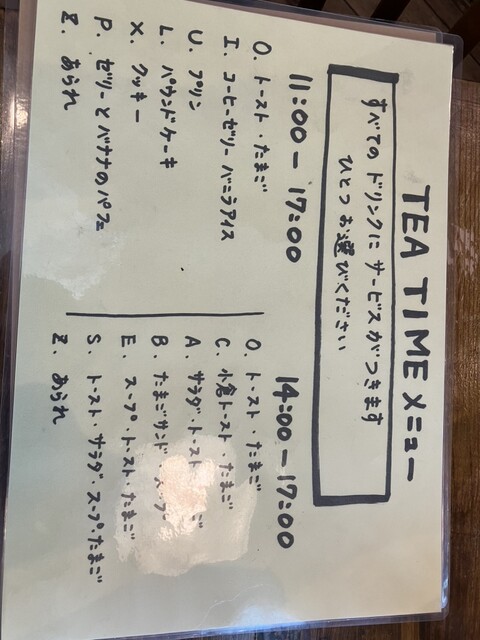 TEA TIME メニュー
すべての ドリンクに サービスがつきます
ひとつ お選びください
11:00 - 17:00
O. トースト・たまご
I. コーヒーゼリー バニラアイス
U. プリン
L. パウンドケーキ
X. クッキー
P. ゼリーとバナナのパフェ
Z. あられ
14:00 - 17:00
O. トースト・たまご
C. 小倉トースト たまご
A. サラダ・トースト ご
B. たまごサンド スープ
E. スープ・トースト・たまご
S. トースト・サラダ・スープ・たまご
Z. あられ